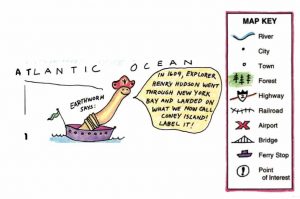 ATLANTIC OCEAN
EARTHWORM
SAYS:
IN 1609, EXPLORER
HENRY HUDSON WENT
THROUGH NEW YORK
BAY AND LANDED ON
WHAT WE NOW CALL
CONEY ISLAND!
LABEL IT!
MAP KEY
River
City
Town
Forest
Highway
Railroad
Airport
Bridge
Ferry Stop
Point of
Interest